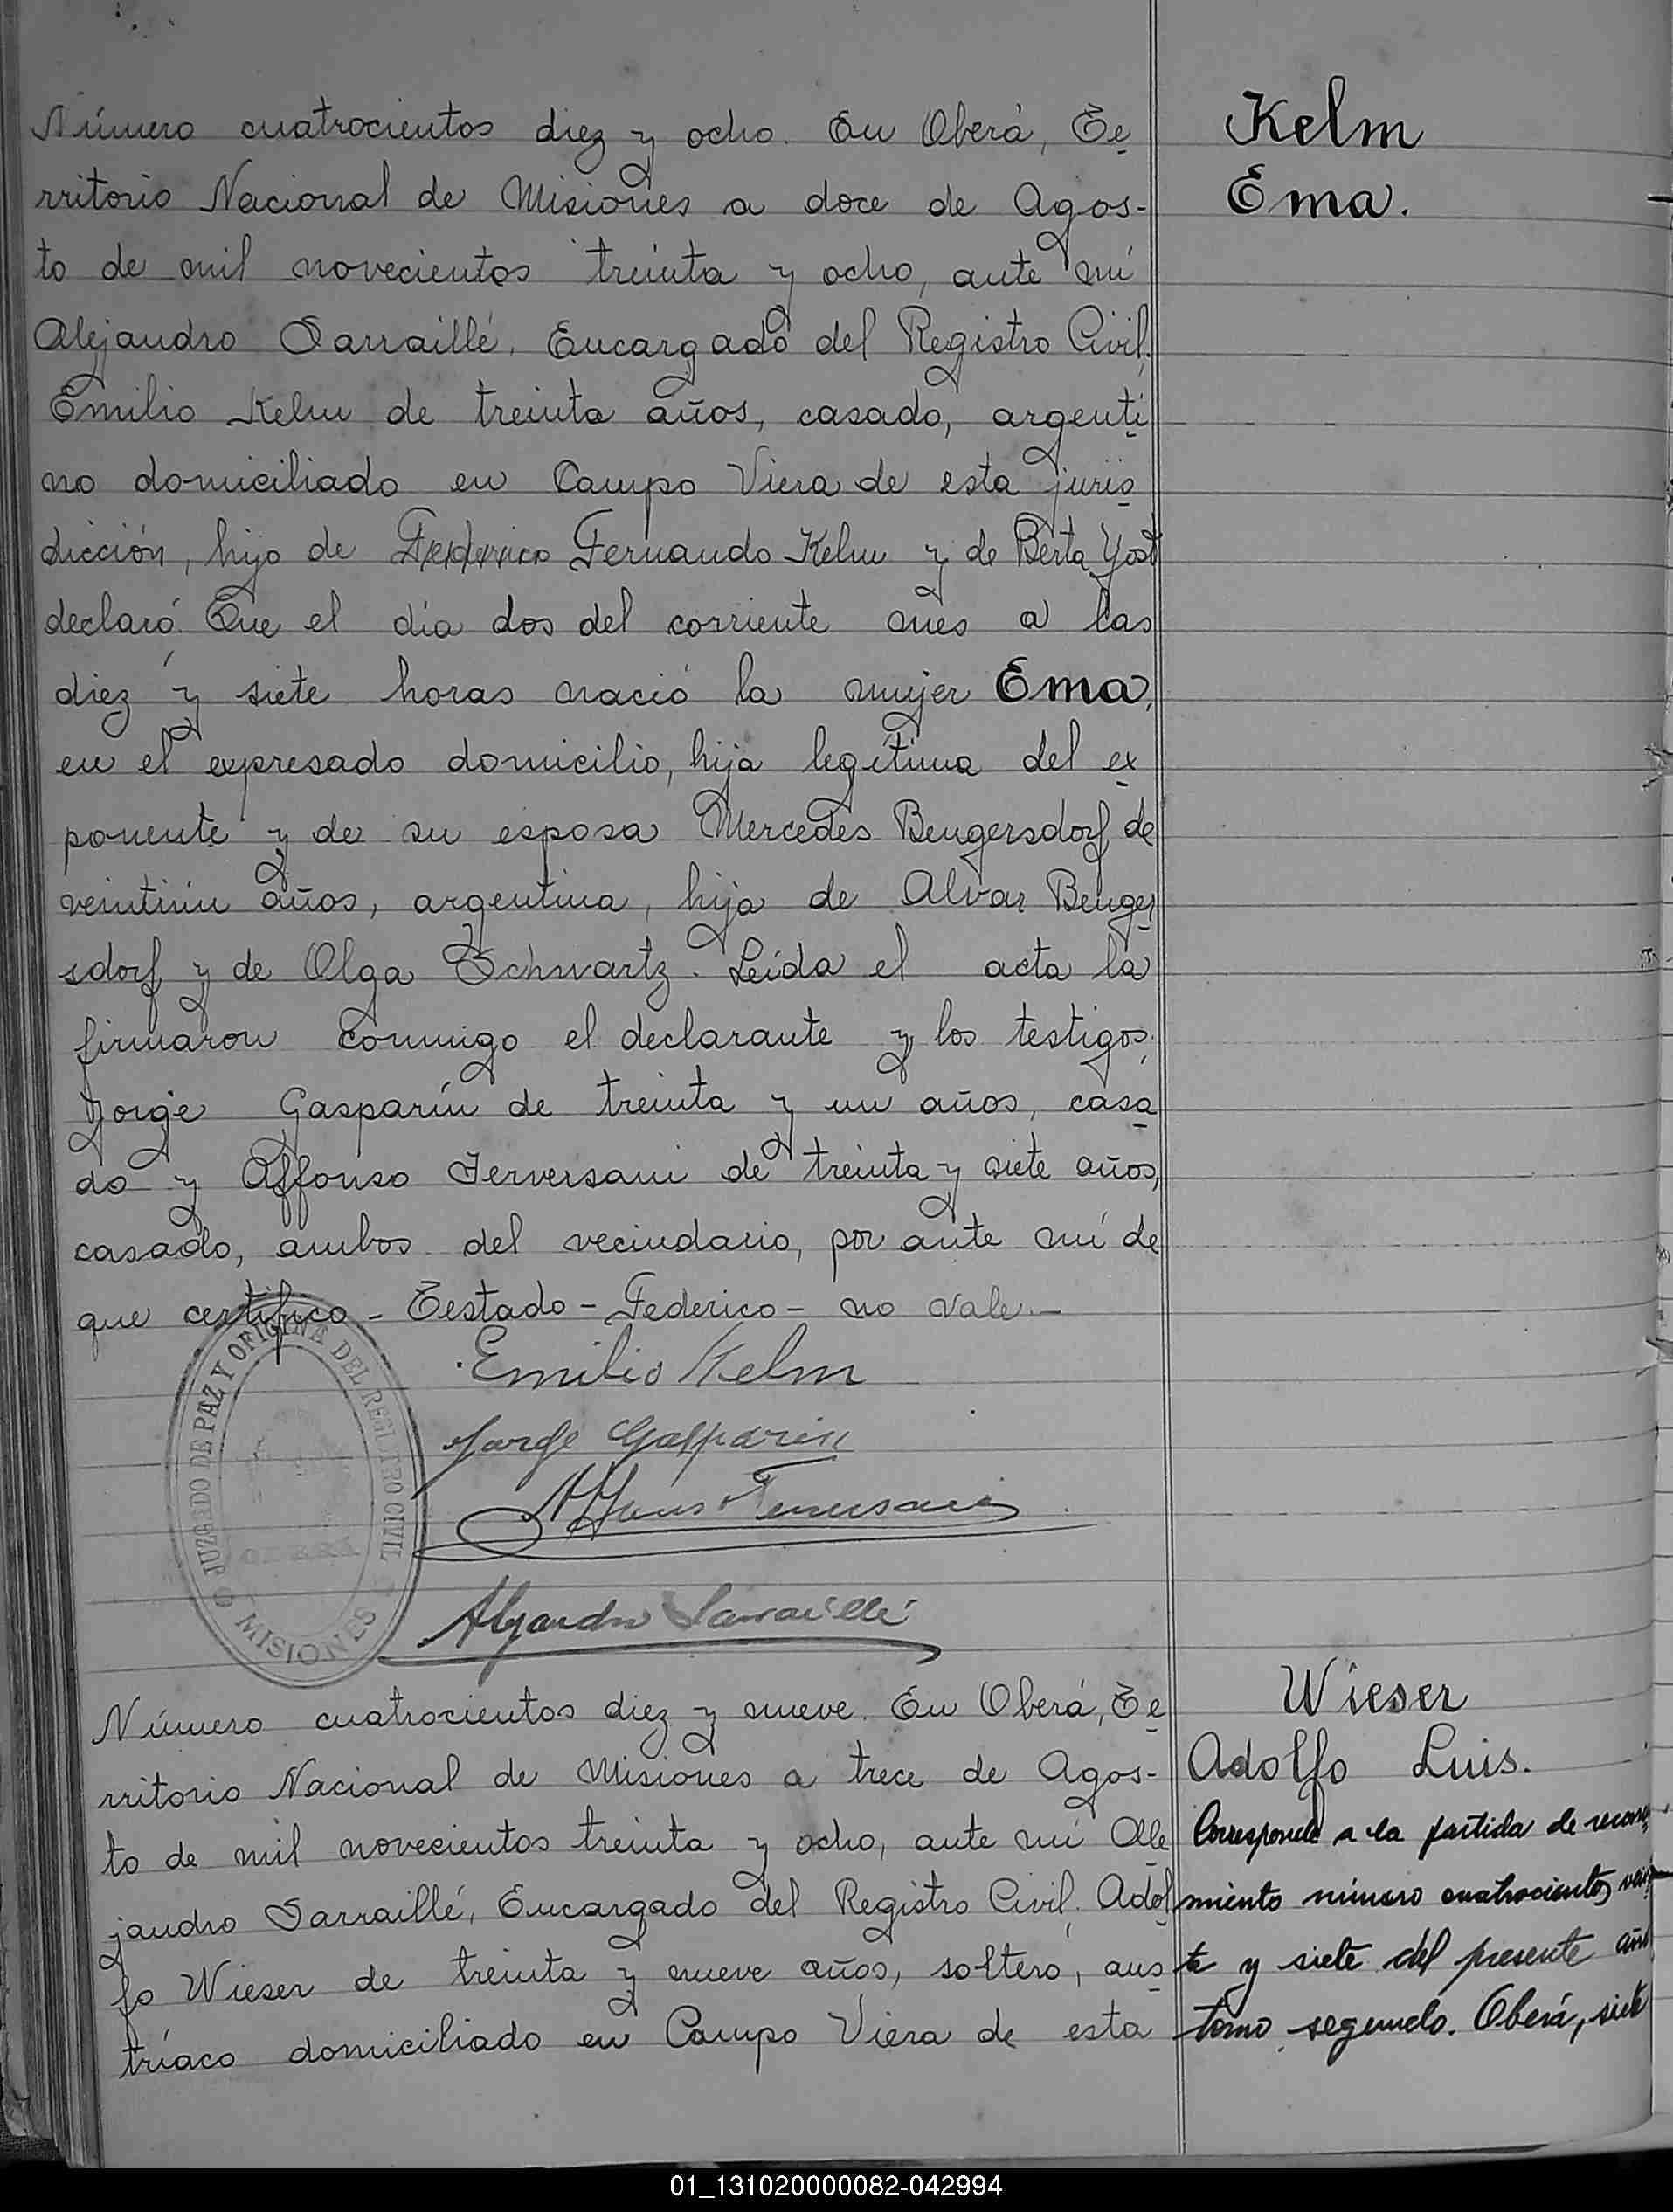 Kelm
Ema.
Número cuatrocientos diez y ocho. En Oberá, Te
rritorio Nacional de Misiones a doce de Agos-
to de mil novecientos treinta y ocho, ante mí
Alejandro Sarraillé, Encargado del Registro Civil.
Emilio Kelm de treinta años, casado, argenti
no domiciliado en Campo Viera de esta juris
dicción, hijo de Federico Fernando Kelm y de Berta Yost
declaró: Que el día dos del corriente mes a las
diez y siete horas nació la mujer Ema,
en el expresado domicilio, hija legítima del ex
ponente y de su esposa Mercedes Bengersdorf de
veintiún años, argentina, hija de Alvar Benger
sdorf y de Olga Schwartz. Leída el acta la
firmaron conmigo el declarante y los testigos:
Jorge Gasparín de treinta y un años, casa
do y Affonso Ferversani de treinta y siete años,
casado, ambos del vecindario, por ante mí de
que certifico - Testado - Federico - no vale. -
Emilio Kelm
Jorge Gasparin
Alejandro Sarraillé
JUZGADO DE PAZ Y OFICINA DEL REGISTRO CIVIL
OBERÁ
MISIONES
Wieser
Adolfo Luis.
Número cuatrocientos diez y nueve. En Oberá, Te
rritorio Nacional de Misiones a trece de Agos-
to de mil novecientos treinta y ocho, ante mí Ale
jandro Sarraillé, Encargado del Registro Civil. Adol
fo Wieser de treinta y nueve años, soltero, aus
tríaco domiciliado en Campo Viera de esta
Corresponde a la partida de recono
miento número cuatrocientos vein
te y siete del presente año
tomo segundo. Oberá, siete
01_131020000082-042994